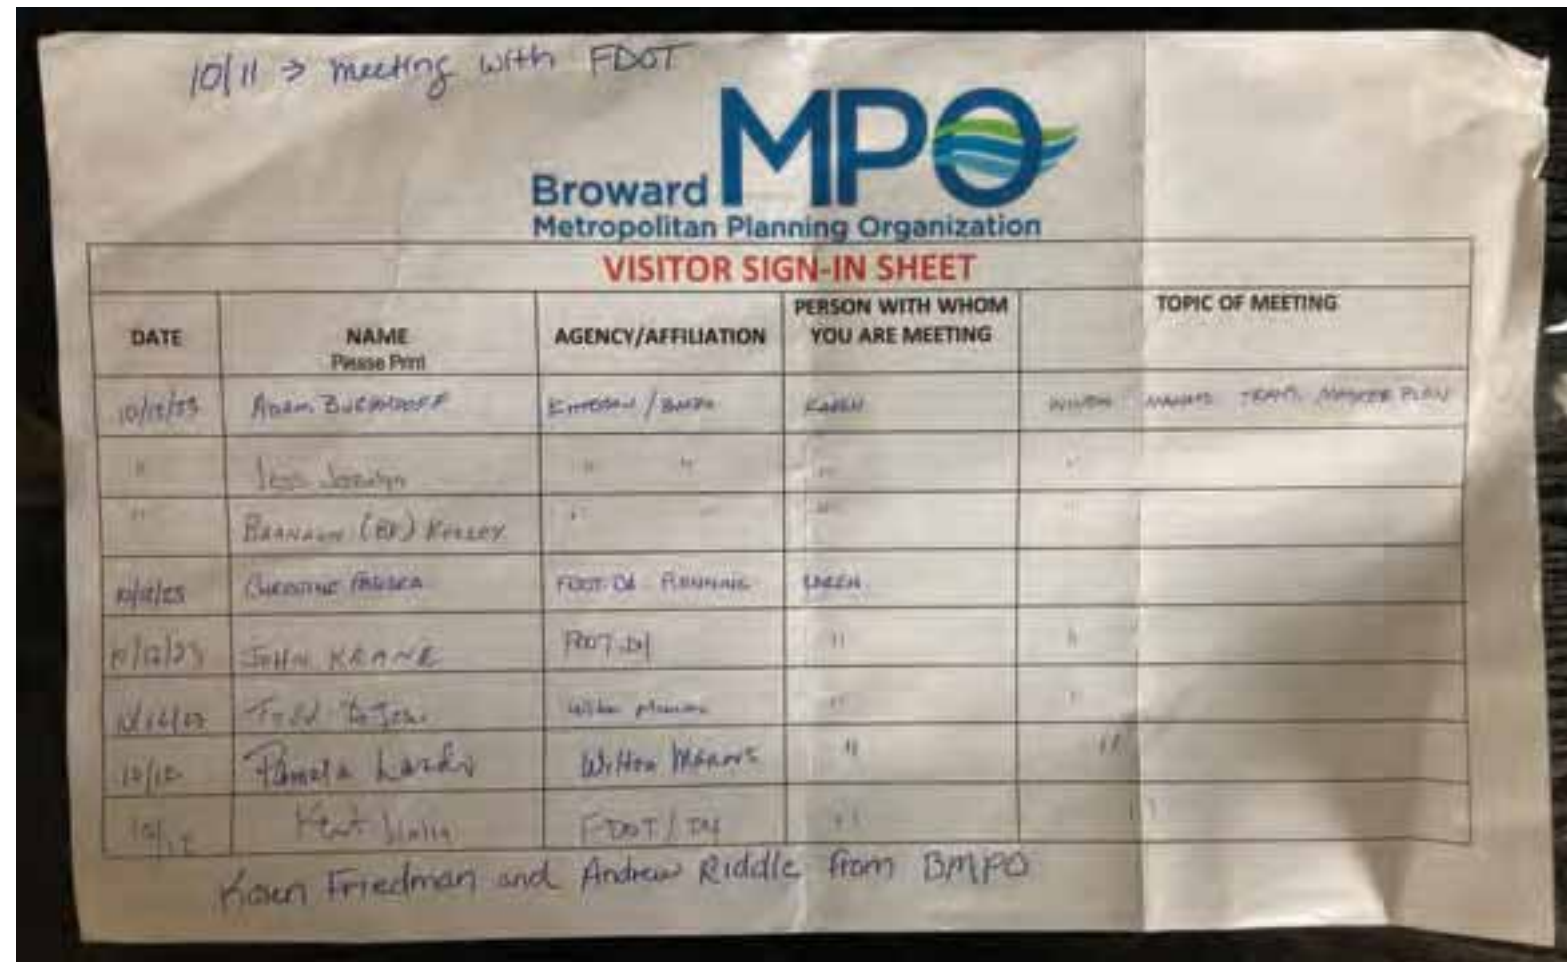 10/11 → meeting with FDOT
MPO
Broward
Metropolitan Planning Organization
VISITOR SIGN-IN SHEET
DATE NAME Please Print AGENCY/AFFILIATION PERSON WITH WHOM YOU ARE MEETING TOPIC OF MEETING
10/12/23 ADAM KITTELSON / BMPO KAREN MANORS MASTER PLAN
" Jess " " " "
" BRANDON (BK) " " " "
10/12/23 CHRISTINE FDOT D4 PLANNING KAREN
10/12/23 JOHN KRANE FDOT D4 " "
Todd Wilton Manors " "
10/12 Pamela Wilton Manors " "
10/12 Kent FDOT / D4 " "
Karen Friedman and Andrew Riddle from BMPO